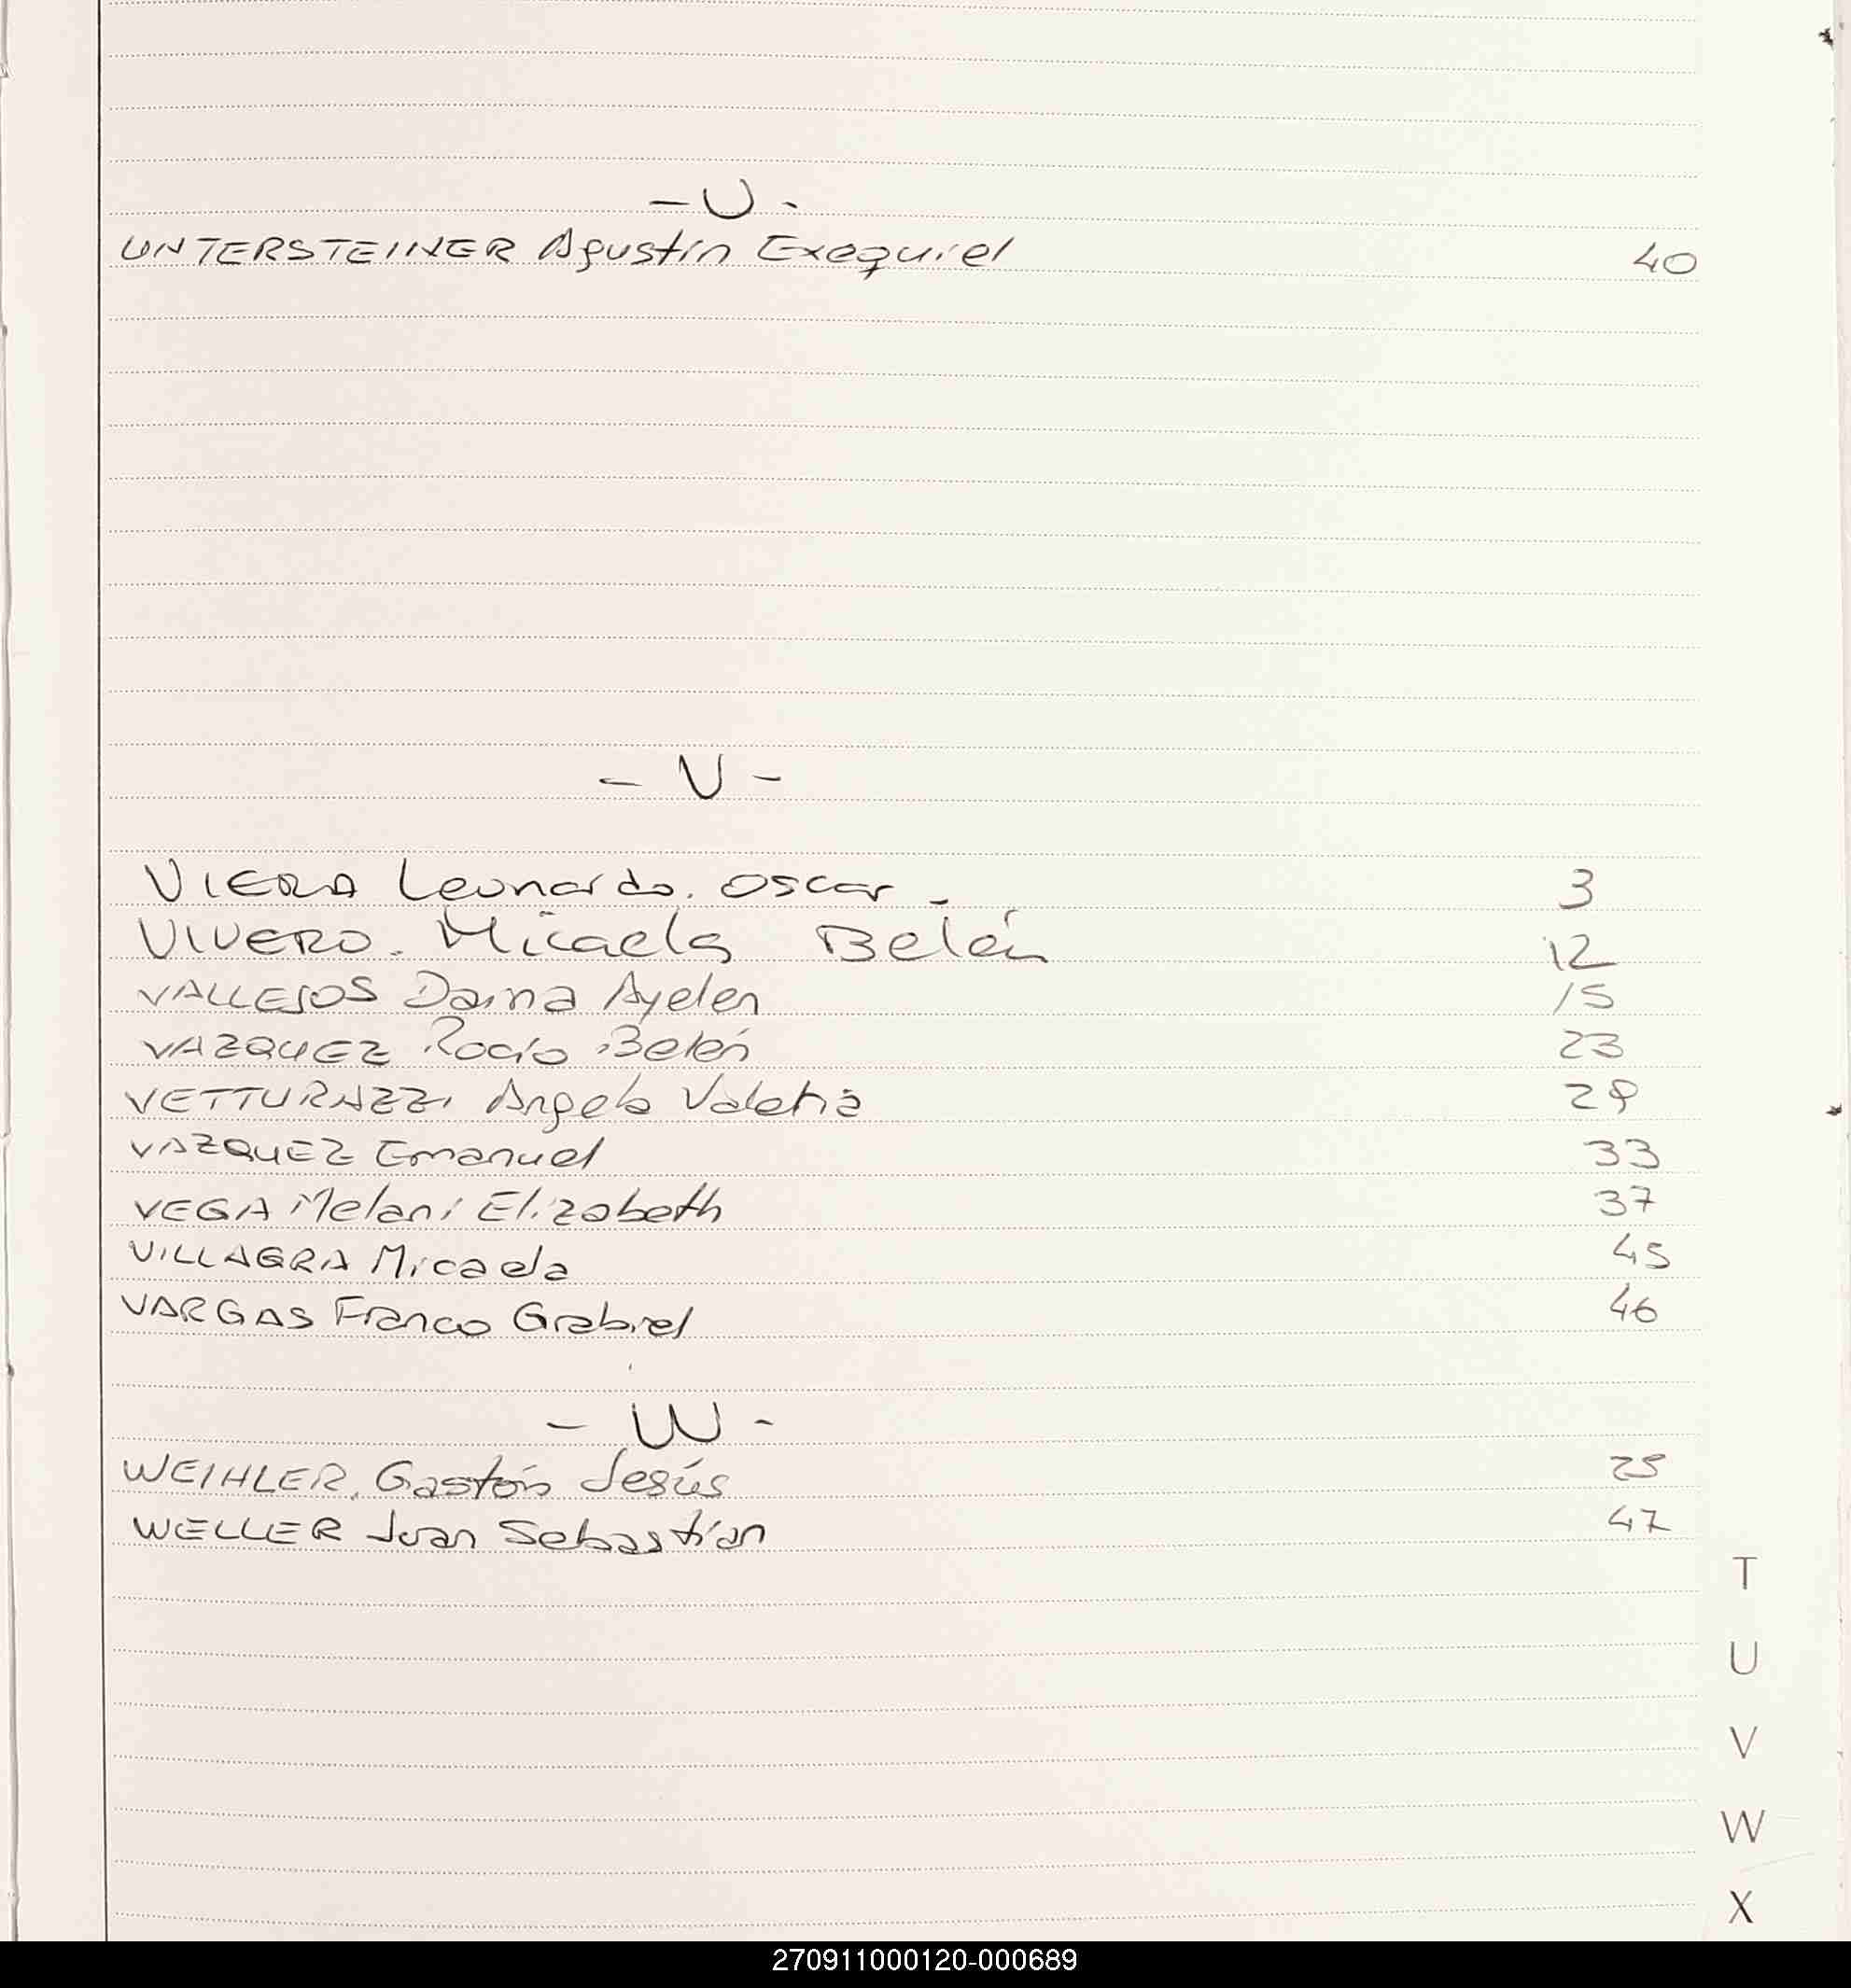 - U -
UNTERSTEINER Agustín Exequiel 40
- V -
VIERA Leonardo. Oscar - 3
VIVERO. Micaela Belén 12
VALLEJOS Daina Ayelen 15
VAZQUEZ Rocío Belén 23
VETTURAZZI Angela Valeria 28
VAZQUEZ Emanuel 33
VEGA Melani Elizabeth 37
VILLAGRA Micaela 45
VARGAS Franco Grabiel 46
- W -
WEIHLER, Gastón Jesús 25
WELLER Juan Sebastían 47
T
U
V
W
X
270911000120-000689